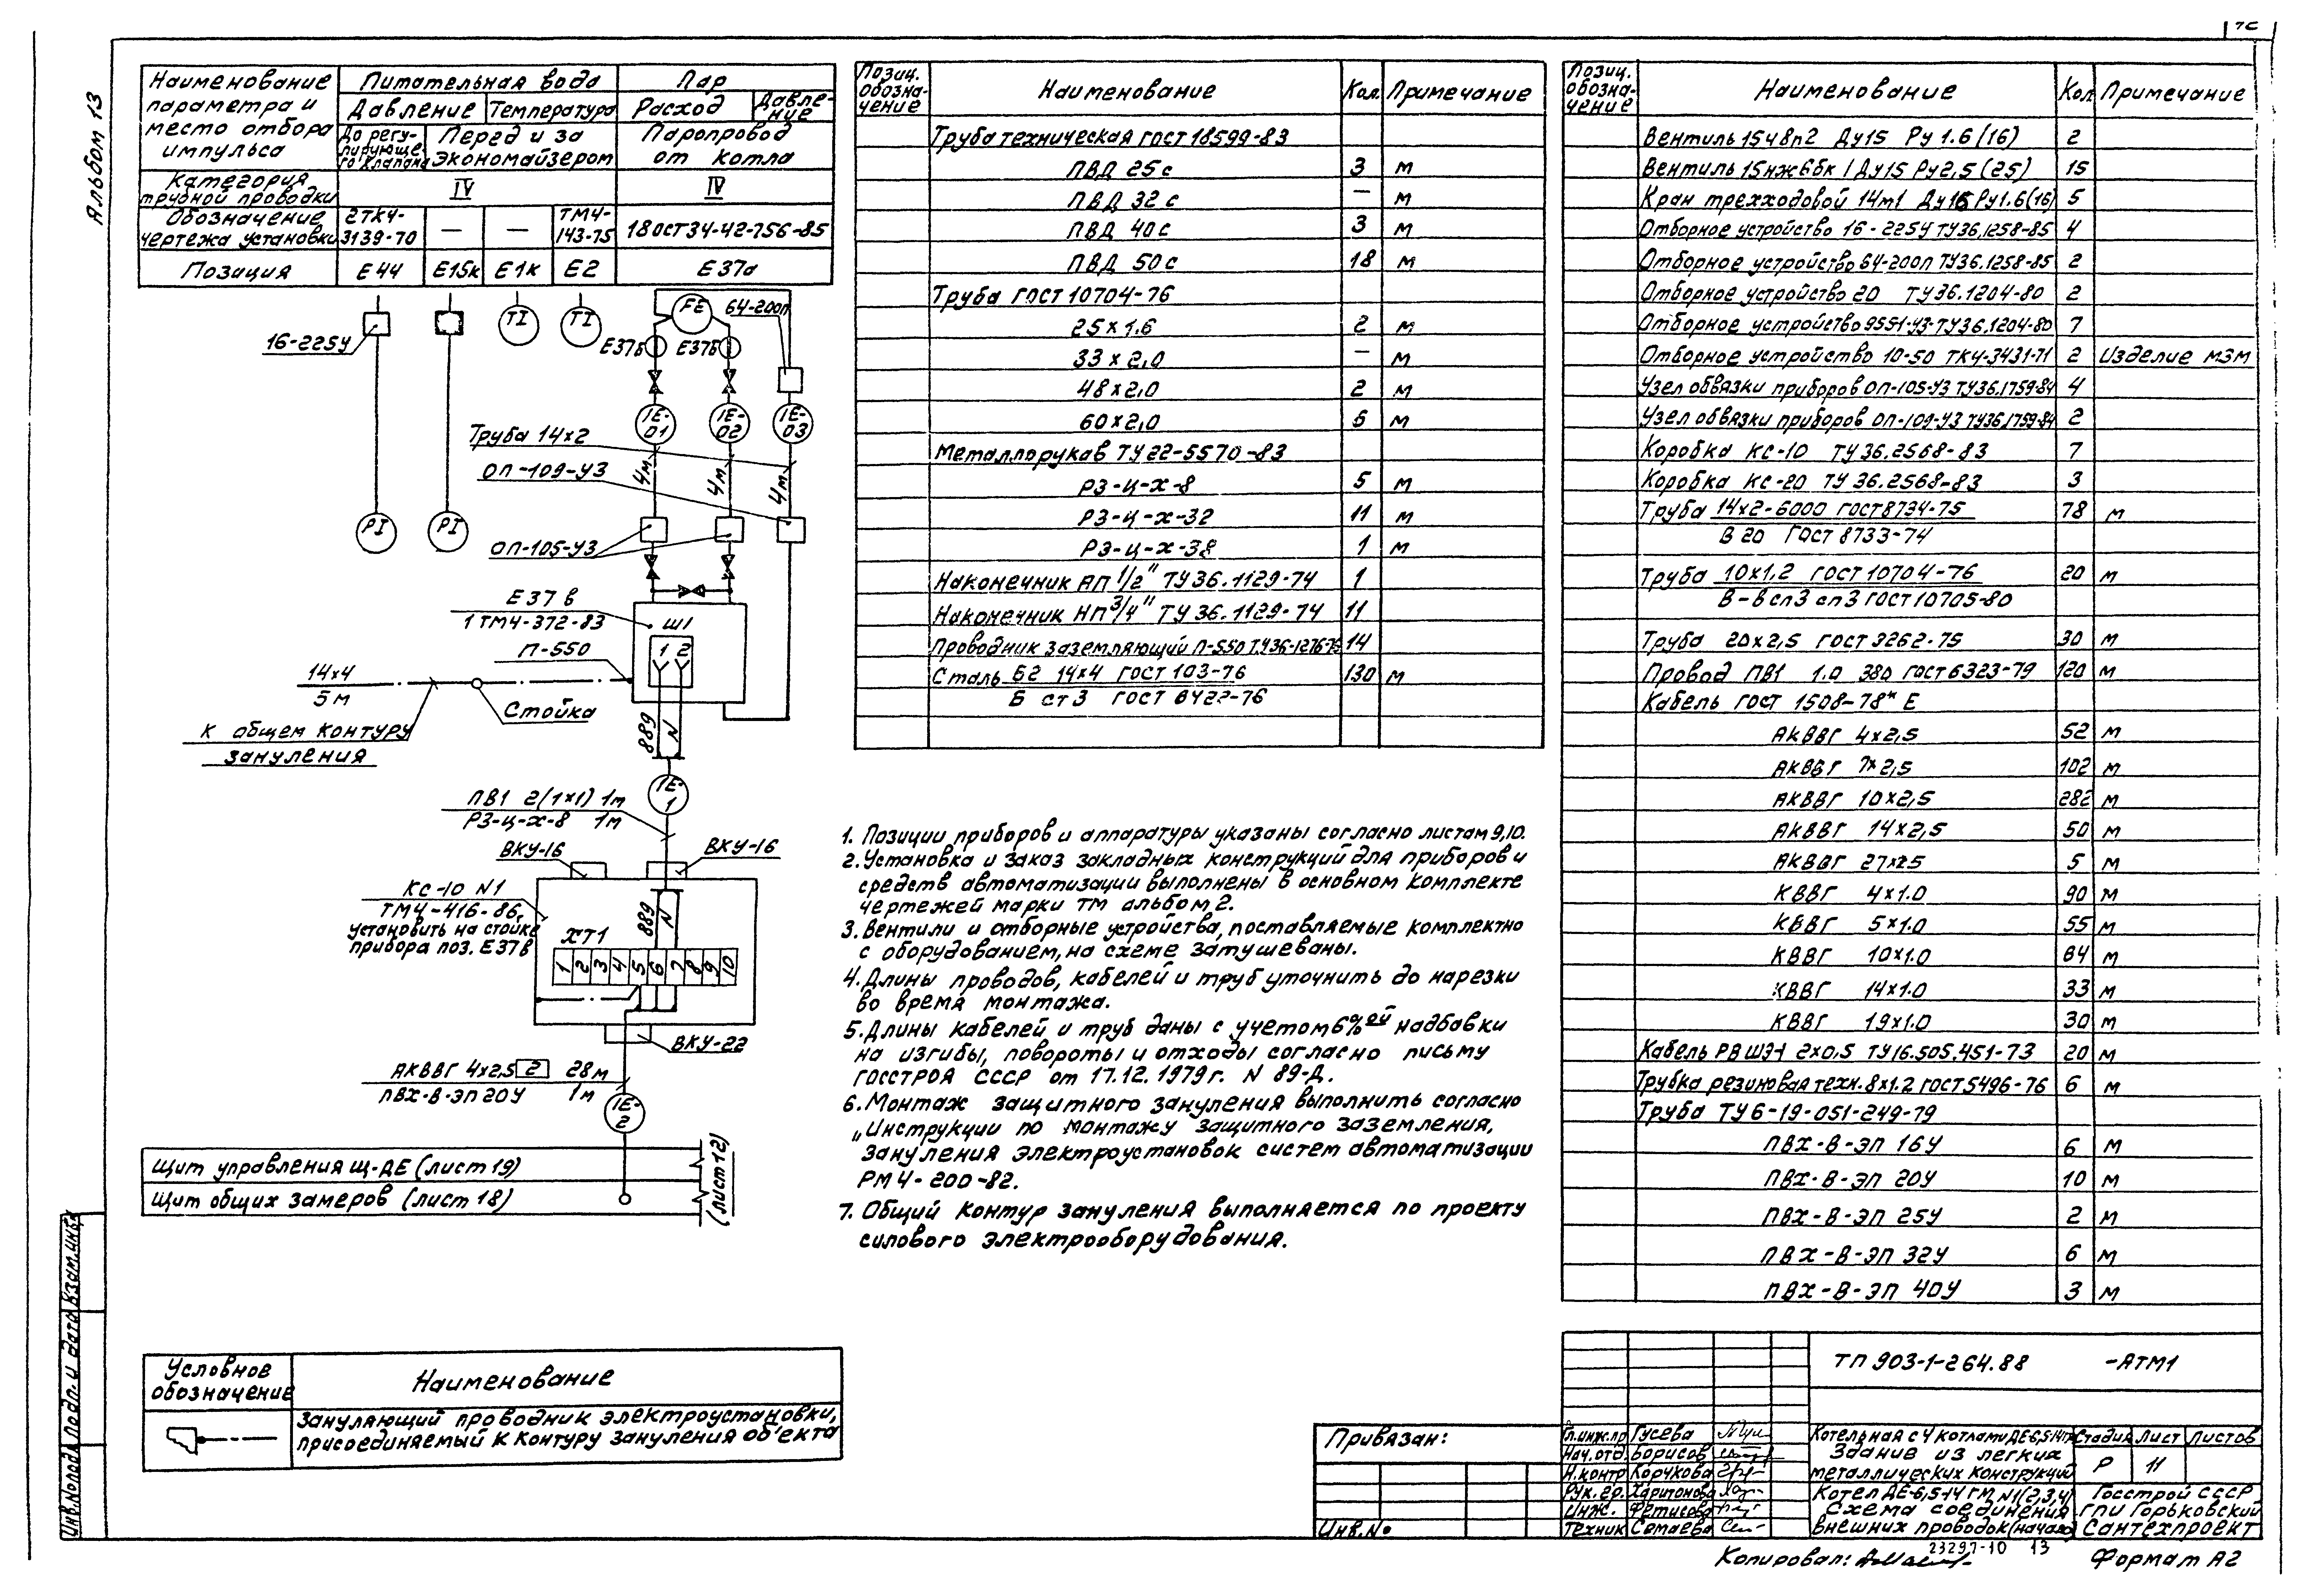 Альбом 13
Наименование параметра и место отбора импульса
Питательная вода
Пар
Давление
Температура
Расход
Давление
До регулирующего клапана
Перед и за экономайзером
Паропровод от котла
Категория трубной проводки
IV
IV
Обозначение чертежа установки
2ТК4-3139-70
—
—
ТМ4-143-75
18 ОСТ 34-42-756-85
Позиция
Е44
Е15к
Е1к
Е2
Е37а
FE
TI
TI
64-200п
16-225У
Е37б
Е37б
1Е-01
1Е-02
1Е-03
Труба 14х2
ОП-109-У3
4м
4м
4м
PI
PI
ОП-105-У3
Е37в
1 ТМ4-372-83
Ш1
П-550
1 2
14х4
5м
Стойка
К общем контуру
зануления
889
N
1Е-1
ПВ1 2(1х1) 1м
РЗ-Ц-Х-8 1м
ВКУ-16
ВКУ-16
КС-10 N1
ТМ4-416-86,
установить на стойке
прибора поз. Е37в
889
N
ХТ1
1 2 3 4 5 6 7 8 9 10
ВКУ-22
АКВВГ 4х2,5 2 28м
ПВХ-В-ЭП 20У 1м
1Е-2
Щит управления Щ-ДЕ (лист 19)
Щит общих замеров (лист 18)
(лист 12)
Условное обозначение
Наименование
Зануляющий проводник электроустановки,
присоединяемый к контуру зануления об'екта
Позиц. обозначение
Наименование
Кол.
Примечание
Труба техническая ГОСТ 18599-83
ПВД 25с 3 м
ПВД 32с — м
ПВД 40с 3 м
ПВД 50с 18 м
Труба ГОСТ 10704-76
25х1,6 2 м
33х2,0 — м
48х2,0 2 м
60х2,0 6 м
Металлорукав ТУ 22-5570-83
РЗ-Ц-Х-8 5 м
РЗ-Ц-Х-32 11 м
РЗ-Ц-Х-38 1 м
Наконечник АП 1/2" ТУ 36.1129-74 1
Наконечник НП 3/4" ТУ 36.1129-74 11
Проводник заземляющий П-550 ТУ36-1276-75 14
Сталь Б2 14х4 ГОСТ 103-76 130 м
Б ст3 ГОСТ 6422-76
1. Позиции приборов и аппаратуры указаны согласно листам 9,10.
2. Установка и заказ закладных конструкций для приборов и
средств автоматизации выполнены в основном комплекте
чертежей марки ТМ альбом 2.
3. Вентили и отборные устройства, поставляемые комплектно
с оборудованием, на схеме затушеваны.
4. Длины проводов, кабелей и труб уточнить до нарезки
во время монтажа.
5. Длины кабелей и труб даны с учетом 6%ой надбавки
на изгибы, повороты и отходы согласно письму
Госстроя СССР от 17.12.1979г. N 89-Д.
6. Монтаж защитного зануления выполнить согласно
„Инструкции по монтажу защитного заземления,
зануления электроустановок систем автоматизации
РМ4-200-82.
7. Общий контур зануления выполняется по проекту
силового электрооборудования.
Позиц. обозначение
Наименование
Кол
Примечание
Вентиль 15ч8п2 Ду15 Ру 1.6 (16) 2
Вентиль 15нж6бк1 Ду15 Ру2,5 (25) 15
Кран трехходовой 14м1 Ду15 Ру1.6(16) 5
Отборное устройство 16-225У ТУ36.1258-85 4
Отборное устройство 64-200п ТУ36.1258-85 2
Отборное устройство 20 ТУ 36.1204-80 2
Отборное устройство 9551-У3-ТУ36.1204-80 7
Отборное устройство 10-50 ТК4-3431-71 2 Изделие МЗМ
Узел обвязки приборов ОП-105-У3 ТУ36.1759-84 4
Узел обвязки приборов ОП-109-У3 ТУ36.1759-84 2
Коробка КС-10 ТУ 36.2568-83 7
Коробка КС-20 ТУ 36.2568-83 3
Труба 14х2-6000 ГОСТ 8734-75 78 м
В 20 ГОСТ 8733-74
Труба 10х1,2 ГОСТ 10704-76 20 м
В-В сп3 сп3 ГОСТ 10705-80
Труба 20х2,5 ГОСТ 3262-75 30 м
Провод ПВ1 1.0 380 ГОСТ 6323-79 120 м
Кабель ГОСТ 1508-78* Е
АКВВГ 4х2,5 52 м
АКВВГ 7х2,5 102 м
АКВВГ 10х2,5 282 м
АКВВГ 14х2,5 50 м
АКВВГ 27х2.5 5 м
КВВГ 4х1.0 90 м
КВВГ 5х1.0 55 м
КВВГ 10х1.0 64 м
КВВГ 14х1.0 33 м
КВВГ 19х1.0 30 м
Кабель РВШЭ-1 2х0,5 ТУ16.505.451-73 20 м
Трубка резиновая техн. 8х1.2 ГОСТ 5496-76 6 м
Труба ТУ6-19-051-249-79
ПВХ-В-ЭП 16У 6 м
ПВХ-В-ЭП 20У 10 м
ПВХ-В-ЭП 25У 2 м
ПВХ-В-ЭП 32У 6 м
ПВХ-В-ЭП 40У 3 м
ТП 903-1-264.88 -АТМ1
Привязан:
Инв.№
Гл.инж.пр Гусева
Нач.отд. Борисов
Н.контр Корчкова
Рук.гр. Харитонова
Инж. Фетисова
Техник Семаева
Котельная с 4 котлами ДЕ-6,5-14ГМ
Здание из легких
металлических конструкций
Стадия Лист Листов
Р 11
Котел ДЕ-6,5-14 ГМ N1(2,3,4)
Схема соединения
внешних проводок (начало)
Госстрой СССР
ГПИ Горьковский
Сантехпроект
23297-10 13
Копировал:
Формат А2
Инв.№подл. Подп. и дата Взам.инв.№